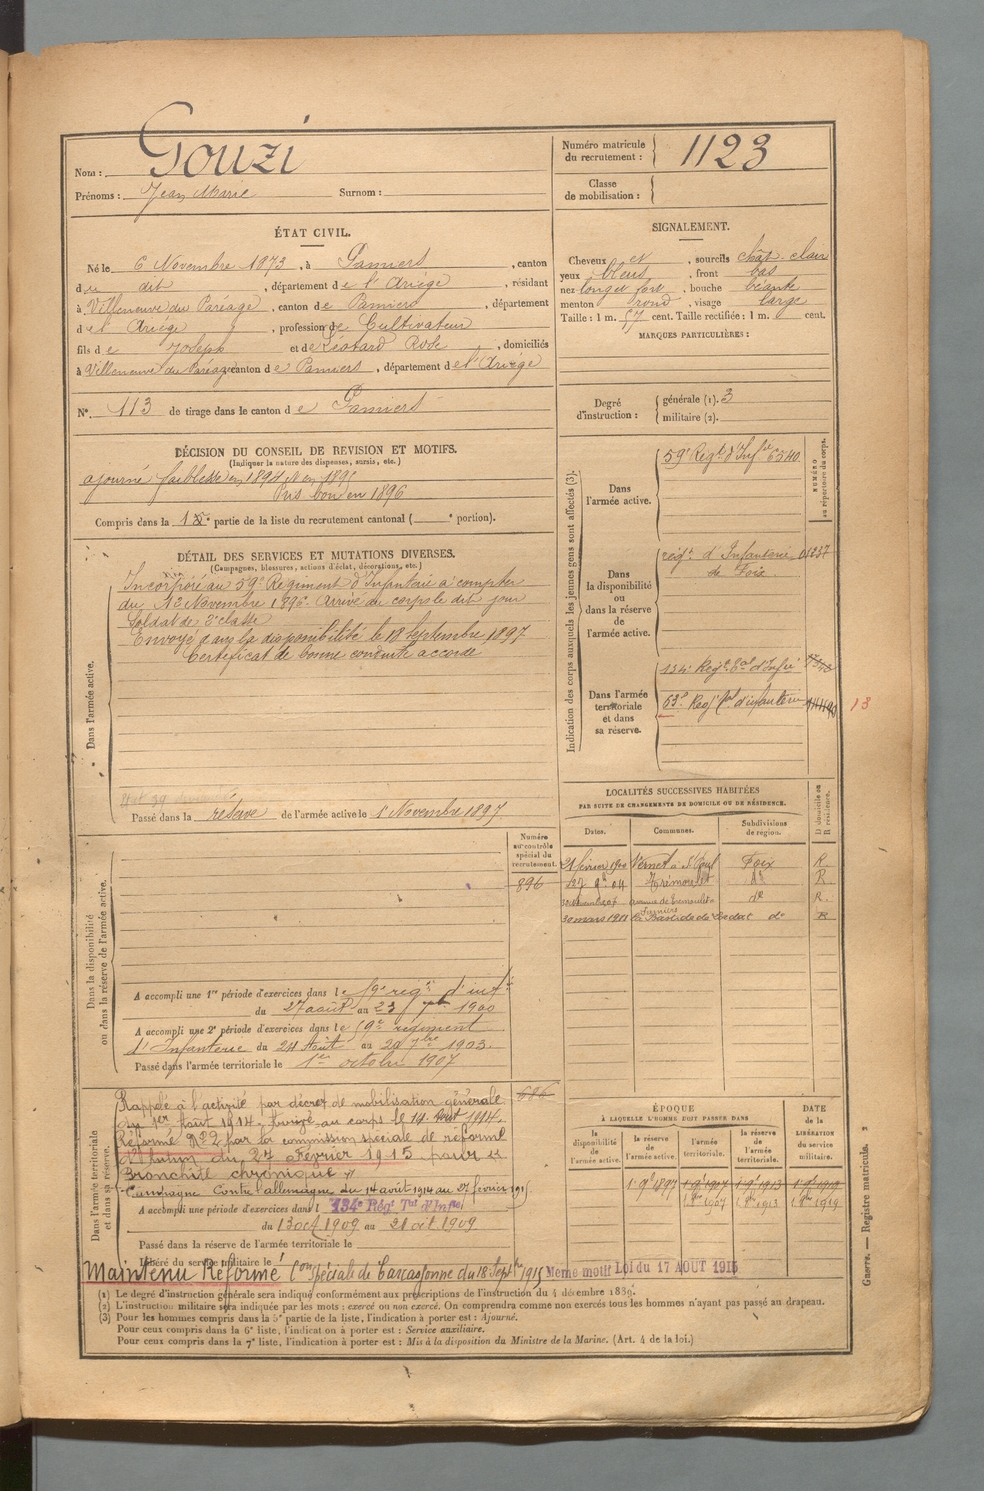 Nom : Gouzi
Prénoms : Jean Marie Surnom :
Numéro matricule du recrutement : 1123
Classe de mobilisation :
ÉTAT CIVIL.
Né le 6 Novembre 1873, à Pamiers, canton
de dit, département de l'Ariège, résidant
à Villeneuve du Paréage, canton de Pamiers, département
de l'Ariège, profession de Cultivateur
fils de Joseph et de Léotard Rose, domiciliés
à Villeneuve du Paréage canton de Pamiers, département de l'Ariège
N°. 113 de tirage dans le canton de Pamiers
SIGNALEMENT.
Cheveux et, sourcils chât. clair
yeux bleus, front bas
nez long et fort, bouche béante
menton rond, visage large
Taille : 1 m. 57 cent. Taille rectifiée : 1 m. cent.
MARQUES PARTICULIÈRES :
Degré d'instruction : générale (1). 3
militaire (2).
DÉCISION DU CONSEIL DE REVISION ET MOTIFS.
(Indiquer la nature des dispenses, sursis, etc.)
ajourné faiblesse en 1894 & en 1895
Pris bon en 1896
Compris dans la 1e partie de la liste du recrutement cantonal ( e portion).
DÉTAIL DES SERVICES ET MUTATIONS DIVERSES.
(Campagnes, blessures, actions d'éclat, décorations, etc.)
Dans l'armée active.
Incorporé au 59e Régiment d'Infanterie à compter
du Novembre 1896. Arrivé au corps le dit jour
Soldat de 2e classe
Envoyé dans la disponibilité le 18 Septembre 1897
Certificat de bonne conduite accordé
Passé dans la réserve de l'armée active le 1er Novembre 1897
Indication des corps auxquels les jeunes gens sont affectés (3).
NUMÉRO au répertoire du corps.
Dans l'armée active.
59e Régt d'Infie 6540
Dans la disponibilité ou dans la réserve de l'armée active.
régt d'Infanterie
de Foix.
Dans l'armée territoriale et dans sa réserve.
134e Regt Tal d'Infie
63e Regt tal d'infanterie
13
LOCALITÉS SUCCESSIVES HABITÉES
PAR SUITE DE CHANGEMENTS DE DOMICILE OU DE RÉSIDENCE.
Dates. Communes. Subdivisions de région. D domicile ou R résidence.
21 février 1900 Vernet Foix R.
04 Trémoulet do R.
do R.
30 mars 1913 La Bastide de Lordat do R
Dans la disponibilité ou dans la réserve de l'armée active.
Numéro au contrôle spécial du recrutement.
896
A accompli une 1re période d'exercices dans le 59e régt d'infie
du 27 août au 23 7bre 1900
A accompli une 2e période d'exercices dans le 59e régiment
d'Infanterie du 24 Août au 20 7bre 1903.
Passé dans l'armée territoriale le 1er octobre 1907
Dans l'armée territoriale et dans sa réserve.
686
Rappelé à l'activité par décret de mobilisation générale
du 1er Août 1914. Arrivé au corps le 14 Août 1914.
Réformé No 2 par la commission spéciale de réforme
d'Autun du 27 Février 1915 pour "
Bronchite chronique "
Campagne Contre l'allemagne du 14 août 1914 au 27 février 1915
A accompli une période d'exercices dans l 134e Rég. Tal d'Infie
du 13 oct 1909 au 21 oct 1909
Passé dans la réserve de l'armée territoriale le
Libéré du service militaire le
Maintenu Réformé Con Spéciale de Carcassonne du 18 Septbre 1915 Meme motif Loi du 17 AOUT 1915
ÉPOQUE
À LAQUELLE L'HOMME DOIT PASSER DANS
la disponibilité de l'armée active. la réserve de l'armée active. l'armée territoriale. la réserve de l'armée territoriale.
DATE de la LIBÉRATION du service militaire.
1 9bre 1897 1 9bre 1907 1 9bre 1913 1 9bre 1919
1 8bre 1907 1 8bre 1913 1 8bre 1919
(1) Le degré d'instruction générale sera indiqué conformément aux prescriptions de l'instruction du 4 décembre 1889.
(2) L'instruction militaire sera indiquée par les mots : exercé ou non exercé. On comprendra comme non exercés tous les hommes n'ayant pas passé au drapeau.
(3) Pour les hommes compris dans la 5e partie de la liste, l'indication à porter est : Ajourné.
Pour ceux compris dans la 6e liste, l'indication à porter est : Service auxiliaire.
Pour ceux compris dans la 7e liste, l'indication à porter est : Mis à la disposition du Ministre de la Marine. (Art. 4 de la loi.)
Guerre. — Registre matricule. 3